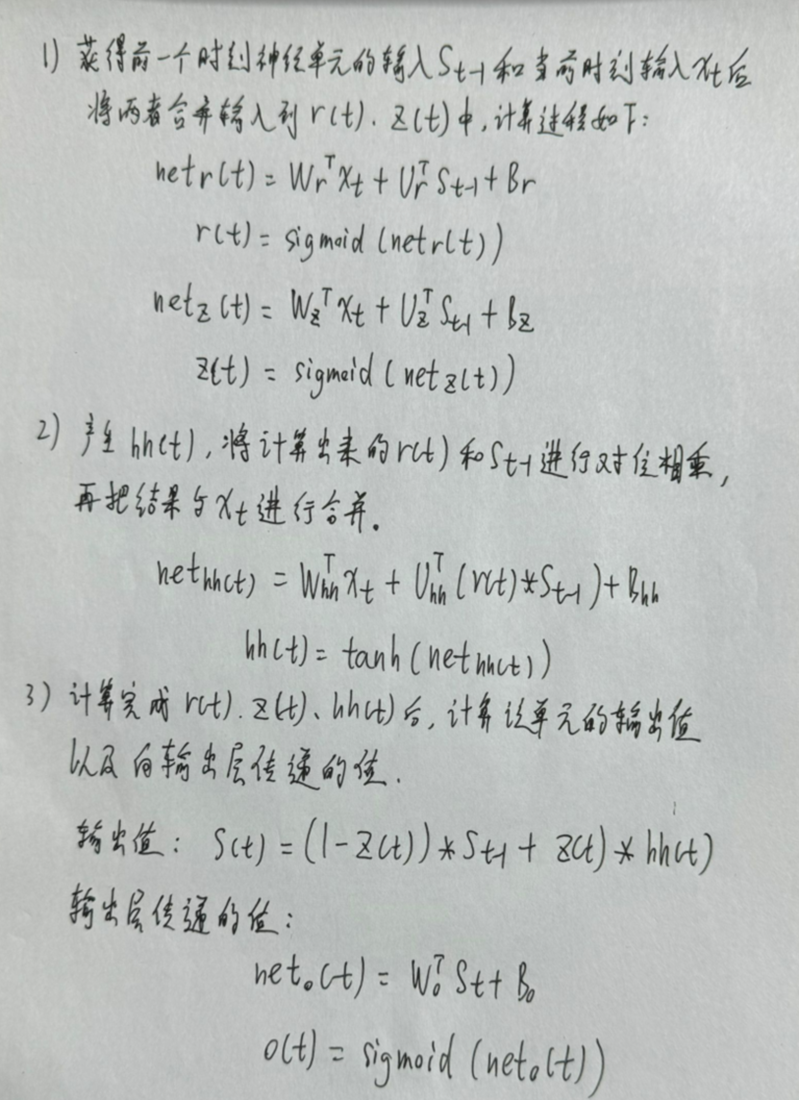 1) 获得前一个时刻神经单元的输入St-1和当前时刻输入xt后
将两者合并输入到r(t).z(t)中,计算过程如下:
netr(t)=Wr^T xt+Ur^T St-1+Br
r(t)=sigmoid(netr(t))
netz(t)=Wz^T xt+Uz^T St-1+Bz
z(t)=sigmoid(netz(t))
2) 产生hh(t),将计算出来的r(t)和St-1进行对位相乘,
再把结果与xt进行合并.
nethh(t)=Whh^T xt+Uhh^T(r(t)*St-1)+Bhh
hh(t)=tanh(nethh(t))
3) 计算完成r(t).z(t)、hh(t)后,计算该单元的输出值
以及向输出层传递的值.
输出值: S(t)=(1-z(t))*St-1+z(t)*hh(t)
输出层传递的值:
neto(t)=Wo^T St+Bo
o(t)=sigmoid(neto(t))